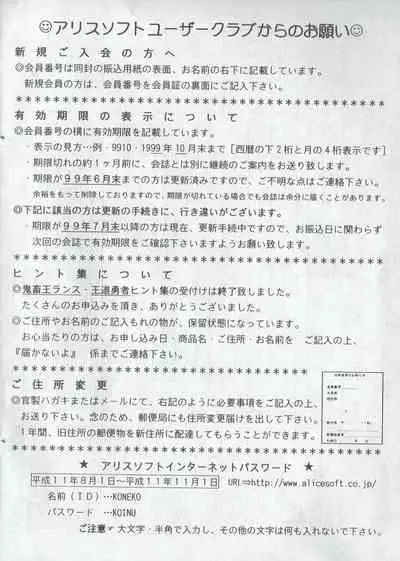 ☺アリスソフトユーザークラブからのお願い☺
新規ご入会の方へ
◎会員番号は同封の振込用紙の表面、お名前の右下に記載しています。
新規会員の方は、会員番号を会員証の裏面にご記入下さい。
有効期限の表示について
◎会員番号の横に有効期限を記載しています。
・表示の見方…例・9910・1999年10月末まで[西暦の下2桁と月の4桁表示です]
・期限切れの約1ヶ月前に、会誌とは別に継続のご案内をお送り致します。
・期限が99年6月末までの方は更新済みですので、ご不明な点はご連絡下さい。
余裕をもって削除しておりますので、期限が切れている場合でも会誌は余分に届くことがあります。
◎下記に該当の方は更新の手続きに、行き違いがございます。
・期限が99年7月末以降の方は現在、更新手続中ですので、お振込日に関わらず
次回の会誌で有効期限をご確認下さいますようお願い致します。
ヒント集について
◎鬼畜王ランス・王道勇者ヒント集の受付けは終了致しました。
たくさんのお申込みを頂き、ありがとうございました。
◎ご住所やお名前のご記入もれの物が、保留状態になっています。
お心当たりの方は、お申し込み日・商品名・ご住所・お名前を ご記入の上、
『届かないよ』 係までご連絡下さい。
ご住所変更
◎官製ハガキまたはメールにて、右記のように必要事項をご記入の上、
お送り下さい。念のため、郵便局にも住所変更届けを出して下さい。
1年間、旧住所の郵便物を新住所に配達してもらうことができます。
★ アリスソフトインターネットパスワード ★
平成11年8月1日~平成11年11月1日 URL⇒http://www.alicesoft.co.jp/
名前(ID)…KONEKO
パスワード …KOINU
ご注意☞ 大文字・半角で入力し、その他の文字は何も入れないで下さい。